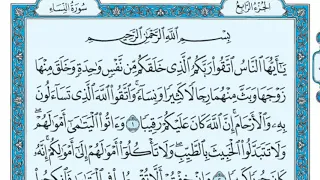 سُورَةُ النِّسَاءِ الجُزءُ الرَّابِعُ
بِسْمِ اللَّهِ الرَّحْمَٰنِ الرَّحِيمِ
يَٰٓأَيُّهَا النَّاسُ اتَّقُوا۟ رَبَّكُمُ الَّذِى خَلَقَكُم مِّن نَّفْسٍ وَٰحِدَةٍ وَخَلَقَ مِنْهَا
زَوْجَهَا وَبَثَّ مِنْهُمَا رِجَالًا كَثِيرًا وَنِسَآءً ۚ وَاتَّقُوا۟ اللَّهَ الَّذِى تَسَآءَلُونَ
بِهِۦ وَالْأَرْحَامَ ۚ إِنَّ اللَّهَ كَانَ عَلَيْكُمْ رَقِيبًا ١ وَءَاتُوا۟ الْيَتَٰمَىٰٓ أَمْوَٰلَهُمْ ۖ
وَلَا تَتَبَدَّلُوا۟ الْخَبِيثَ بِالطَّيِّبِ ۖ وَلَا تَأْكُلُوٓا۟ أَمْوَٰلَهُمْ إِلَىٰٓ أَمْوَٰلِكُمْ ۚ إِنَّهُۥ